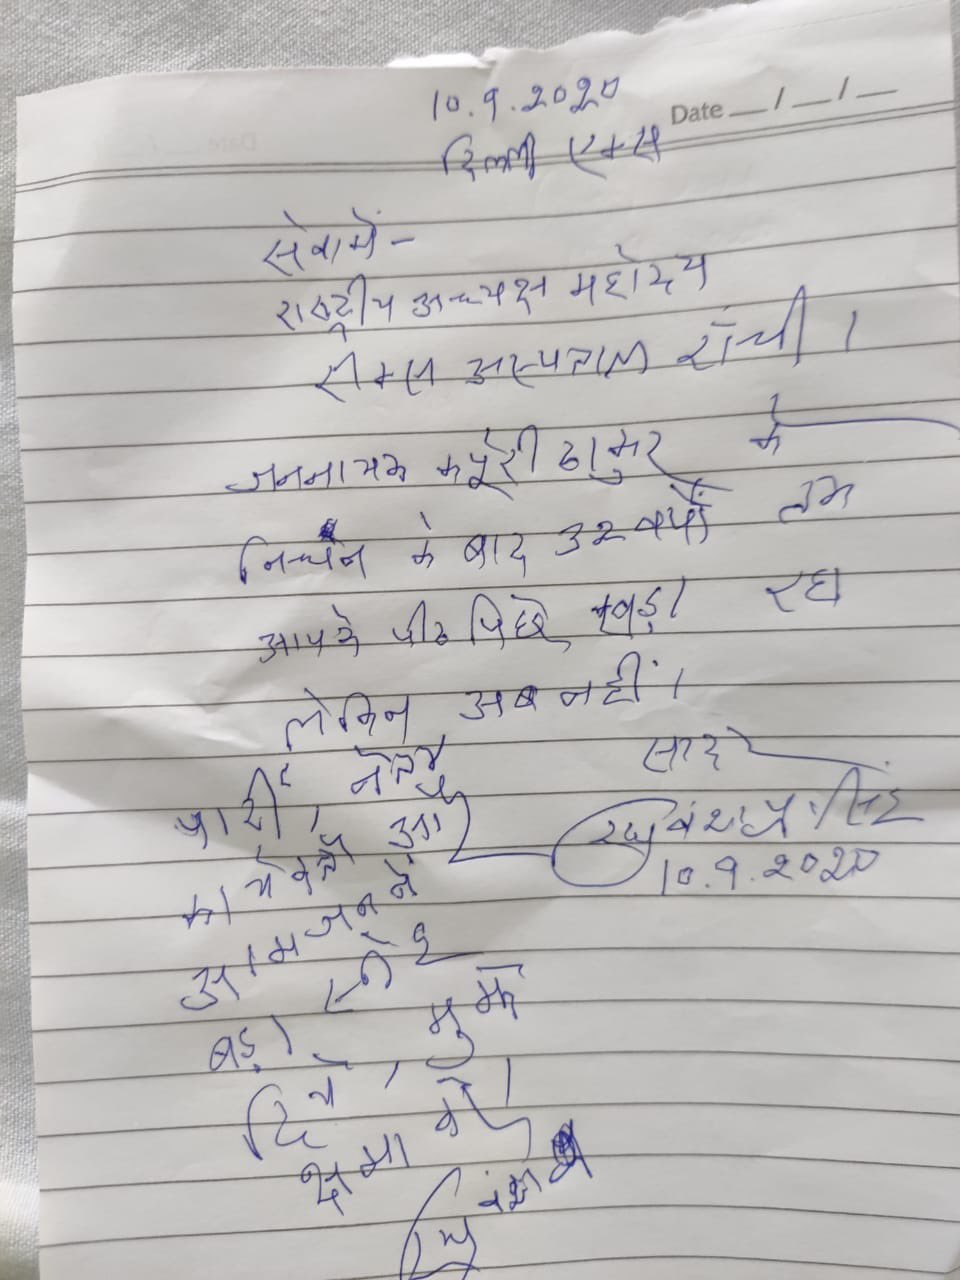 10.9.2020
Date __/__/__
दिल्ली एम्स
सेवामें-
राष्ट्रीय अध्यक्ष महोदय
रीम्स अस्पताल राँची।
जननायक कर्पूरी ठाकुर के
निधन के बाद 32 वर्षों तक
आपके पीठ पिछे खड़ा रहा
लेकिन अब नहीं।
पार्टी, नेता
कार्यकर्ता और
आमजन ने
बड़ा स्नेह
दिया, मुझे
क्षमा करें।
रघुवंश प्र
सादर
रघुवंश प्र० सिंह
10.9.2020